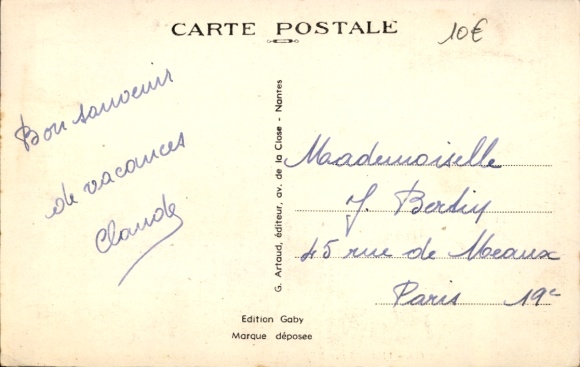 CARTE POSTALE
10€
Bon souvenir
de vacances
Claude
G. Artaud, éditeur, av. de la Close - Nantes
Mademoiselle
J. Bertin
45 rue de Meaux
Paris 19e
Edition Gaby
Marque déposee